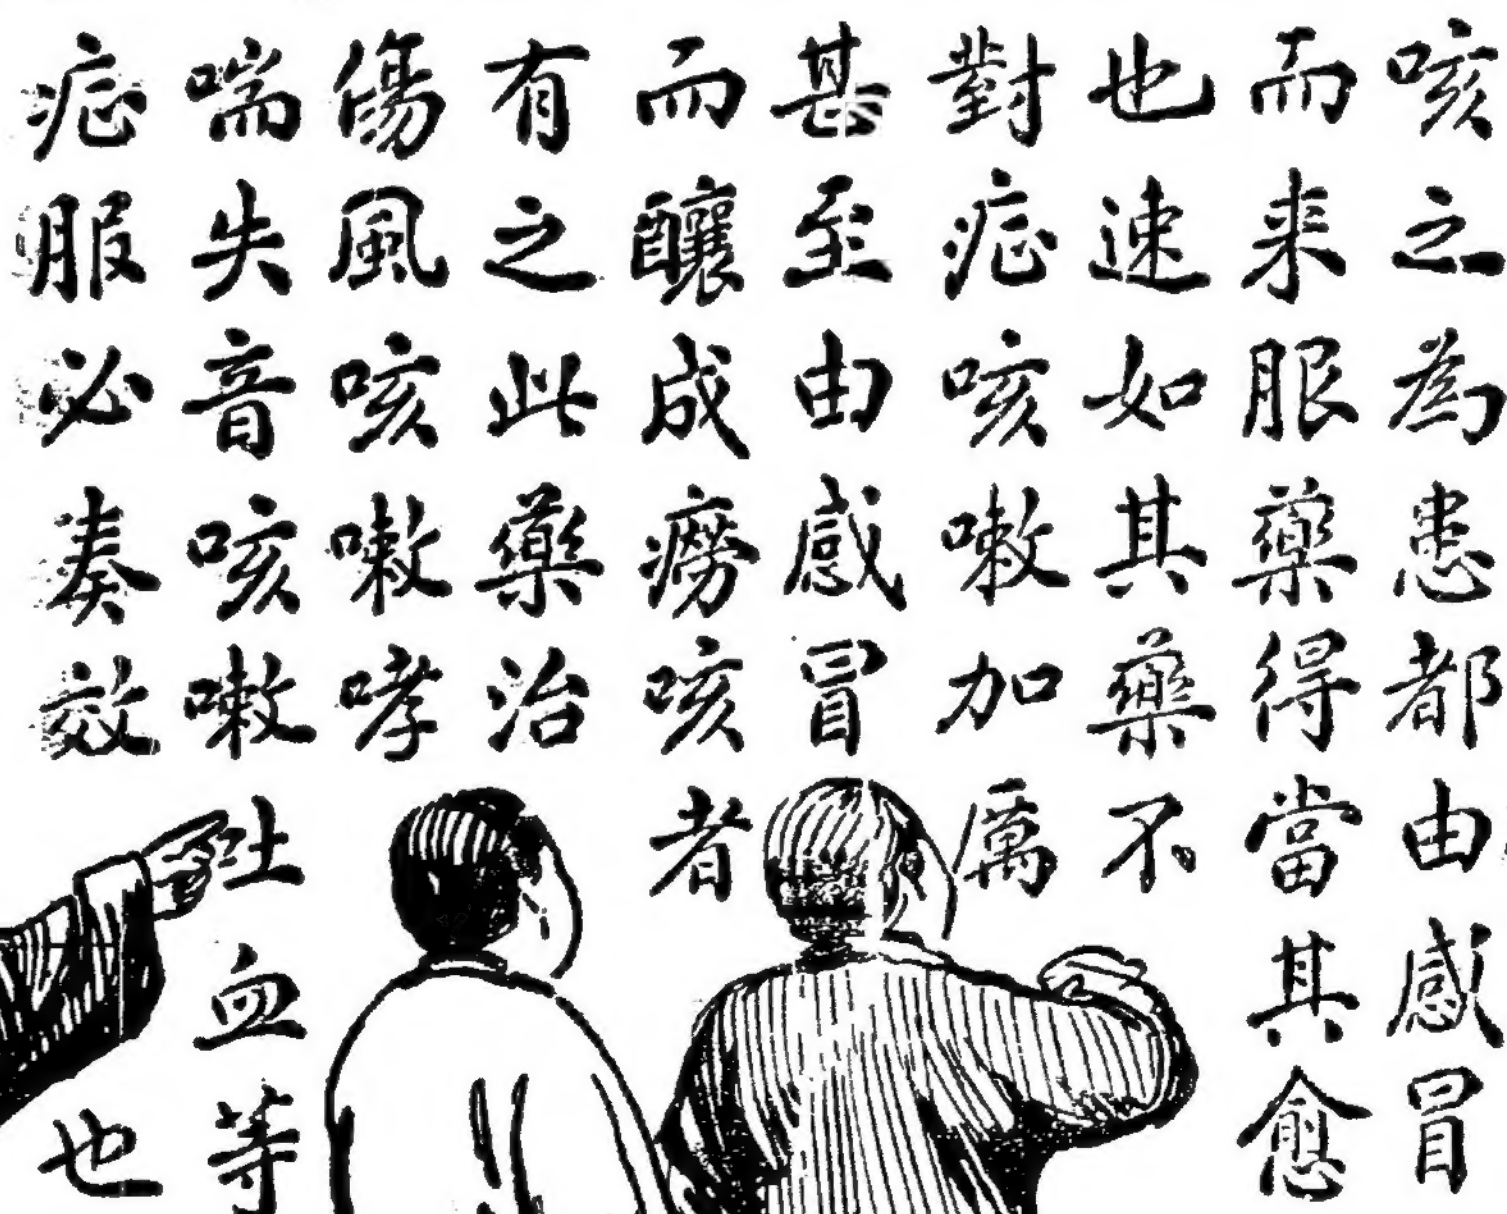 咳之為患都由感冒
而来服藥得當其愈
也速如其藥不
對症咳嗽加厲
甚至由感冒
而釀成癆咳者
有之此藥治
傷風咳嗽哮
喘失音咳嗽吐血等
症服必奏效也